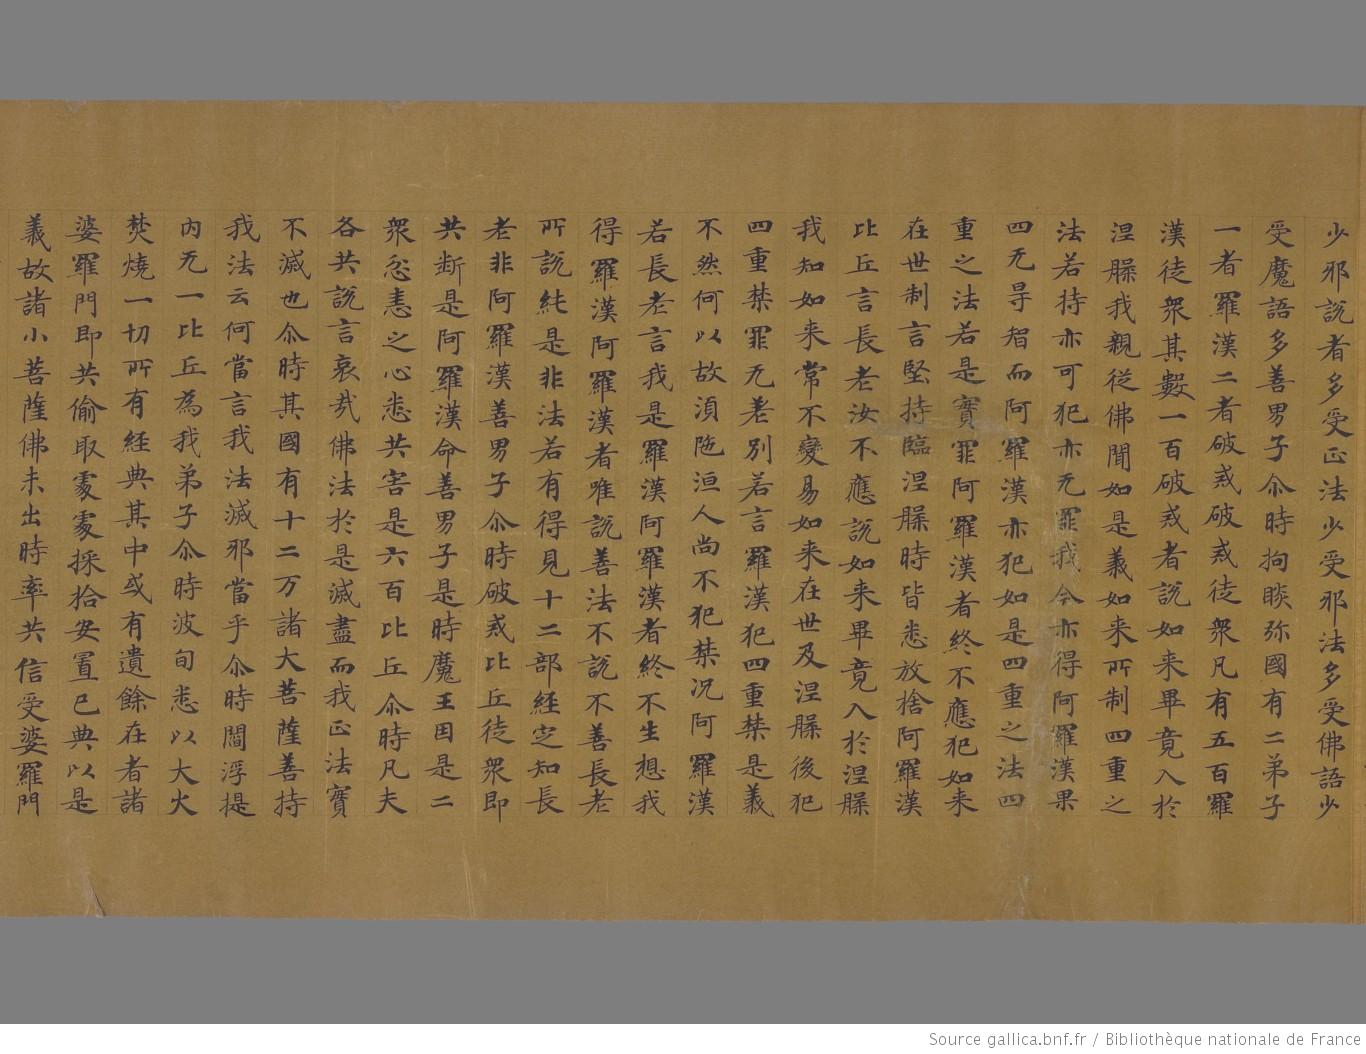 少邪說者多受正法少受邪法多受佛語少
受魔語多善男子尒時拘睒弥國有二弟子
一者羅漢二者破戒破戒徒衆凡有五百羅
漢徒衆其數一百破戒者說如来畢竟入於
涅槃我親從佛聞如是義如来所制四重之
法若持亦可犯亦无罪我今亦得阿羅漢果
四无㝵智而阿羅漢亦犯如是四重之法四
重之法若是實罪阿羅漢者終不應犯如来
在世制言堅持臨涅槃時皆悉放捨阿羅漢
比丘言長老汝不應說如来畢竟入於涅槃
我知如来常不變易如来在世及涅槃後犯
四重禁罪无差別若言羅漢犯四重禁是義
不然何以故湏陁洹人尚不犯禁况阿羅漢
若長老言我是羅漢阿羅漢者終不生想我
得羅漢阿羅漢者唯說善法不說不善長老
所說純是非法若有得見十二部經定知長
老非阿羅漢善男子尒時破戒比丘徒衆即
共斷是阿羅漢命善男子是時魔王因是二
衆忿恚之心悉共害是六百比丘尒時凡夫
各共說言哀㢤佛法於是滅盡而我正法實
不滅也尒時其國有十二万諸大菩薩善持
我法云何當言我法滅邪當乎尒時閻浮提
内无一比丘為我弟子尒時波旬悉以大火
焚燒一切所有經典其中或有遺餘在者諸
婆羅門即共偷取處處採拾安置已典以是
義故諸小菩薩佛未出時率共信受婆羅門
Source gallica.bnf.fr / Bibliothèque nationale de France